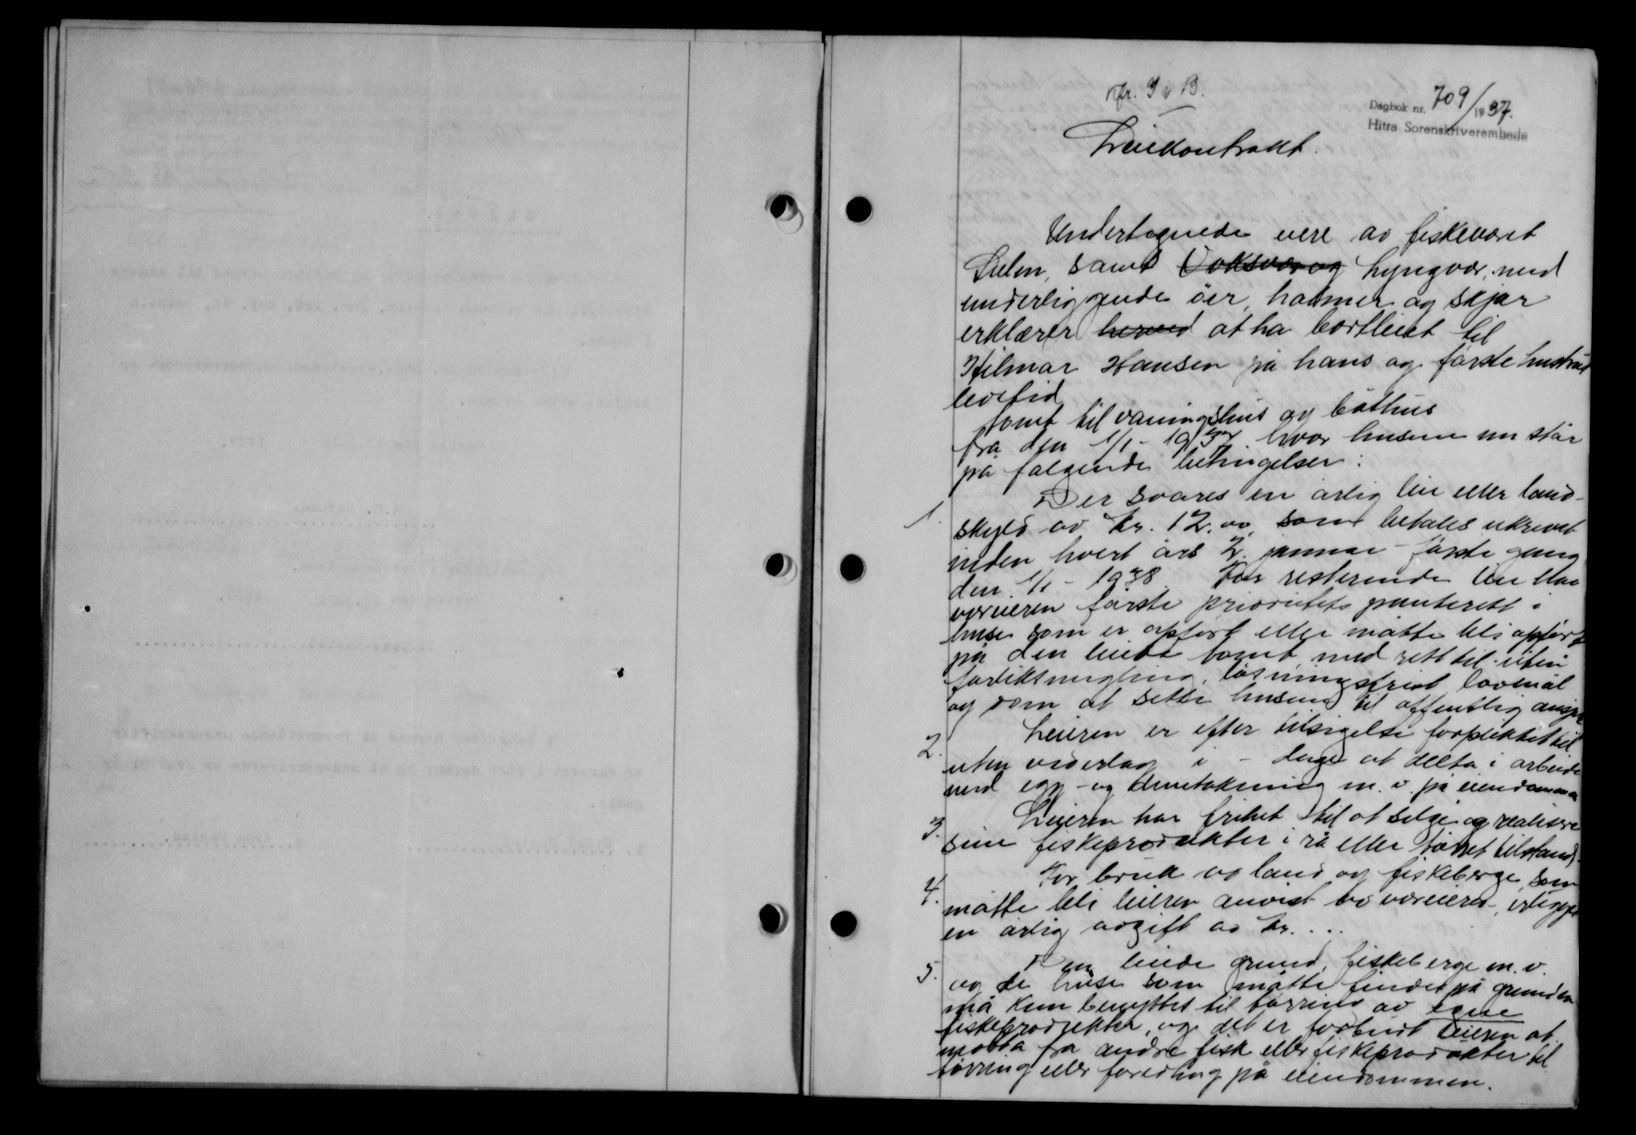 Dagbok nr. 709/1937.
Hitra Sorenskriverembede
Leiekontrakt.
Undertegnede eiere av fiskeværet
Sulen, samt Voksvær og Lyngvær, med
underliggende öer, holmer og skjær
erklærer herved at ha bortleiet til
Hilmar Hansen på hans og første hustrus
levetid
tomt til våningshus og båthus
fra den 1/1-1937 hvor husene nu står
på følgende betingelser:
1. Der svares en årlig leie eller land-
skyld av kr. 12.00, som betales ukrævet
inden hvert års 2. januar første gang
den 1/1-1938. For resterende leie har
væreieren første prioritets panterett i
huse som er opført eller måtte bli opført
på den leiede tomt, med rett til uten
forliksmegling, løsningsfrist, lovmål
og dom at sette husene til offentlig
2. Leieren er efter tilsigelse forpliktet til
uten vederlag i - dage at delta i arbeide
med egg- og m. v. på eiendommen
3. Leieren har frihet til at selge og realisere
sine fiskeprodukter i rå eller tørret tilstand.
4. For bruk av land og fiskeberge, som
måtte bli leieren anvist av væreieren, erlegges
en årlig avgift av kr. ...
5. Den leiede grund, fiskeberge m. v.
og de huse som måtte findes på grunden
må kun benyttes til tørring av egne
fiskeprodukter, og det er forbudt leieren at
motta fra andre fisk eller fiskeprodukter til
tørring eller foredling på eiendommen.